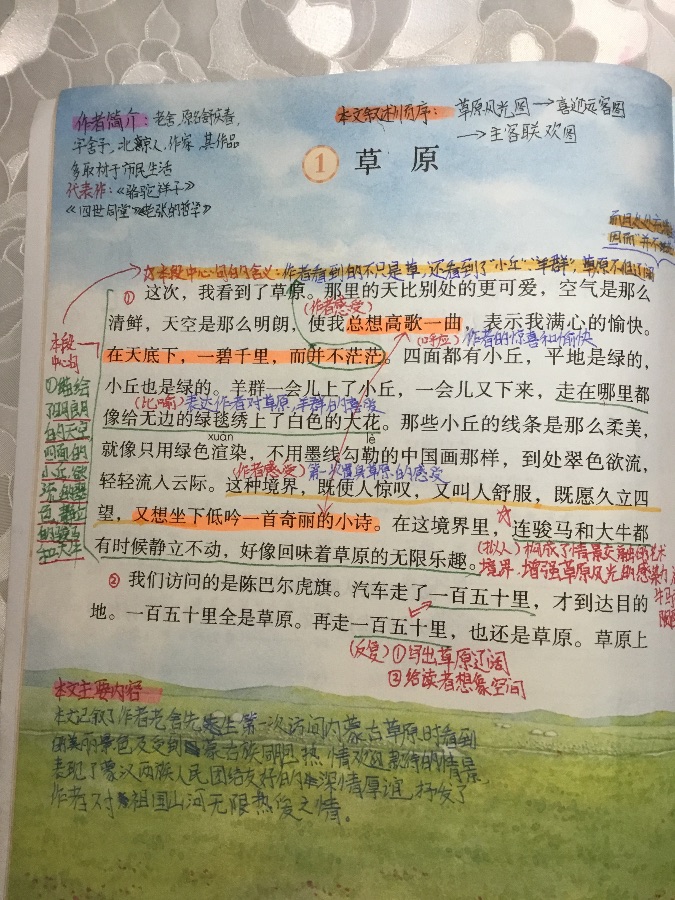 作者简介：老舍，原名舒庆春，
字舍予，北京人，作家，其作品
多取材于市民生活
代表作：《骆驼祥子》
《四世同堂》《老张的哲学》
本文叙述顺序：草原风光图→喜迎远客图
→主客联欢图
1 草原
因而"并不
本段中心句的含义：作者看到的不只是草，还看到了"小丘""羊群"，草原不但辽阔
①这次，我看到了草原。那里的天比别处的更可爱，空气是那么
(作者感受)
清鲜，天空是那么明朗，使我总想高歌一曲，表示我满心的愉快。
(呼应)作者的惊喜和愉快
在天底下，一碧千里，而并不茫茫。四面都有小丘，平地是绿的，
小丘也是绿的。羊群一会儿上了小丘，一会儿又下来，走在哪里都
(比喻)表达作者对草原、羊群的喜爱
像给无边的绿毯绣上了白色的大花。那些小丘的线条是那么柔美，
xuàn lè
就像只用绿色渲染，不用墨线勾勒的中国画那样，到处翠色欲流，
(作者感受)第一次置身草原的感受
轻轻流入云际。这种境界，既使人惊叹，又叫人舒服，既愿久立四
望，又想坐下低吟一首奇丽的小诗。在这境界里，连骏马和大牛都
有时候静立不动，好像回味着草原的无限乐趣。
(拟人)构成了情景交融的艺术
境界，增强草原风光的感染力
本段
中心句
①描绘
了明朗
的天空
四面的
小丘、欲
流的翠
色、静立
的骏马
和大牛
②我们访问的是陈巴尔虎旗。汽车走了一百五十里，才到达目的
地。一百五十里全是草原。再走一百五十里，也还是草原。草原上
(反复)①写出草原辽阔
②给读者想象空间
本文主要内容
本文记叙了作者老舍先生第一次访问内蒙古草原时看到
的美丽景色及受到蒙古族同胞热情欢迎款待的情景，
表现了蒙汉两族人民团结友好的深情厚谊，抒发了
作者对祖国山河无限热爱之情。